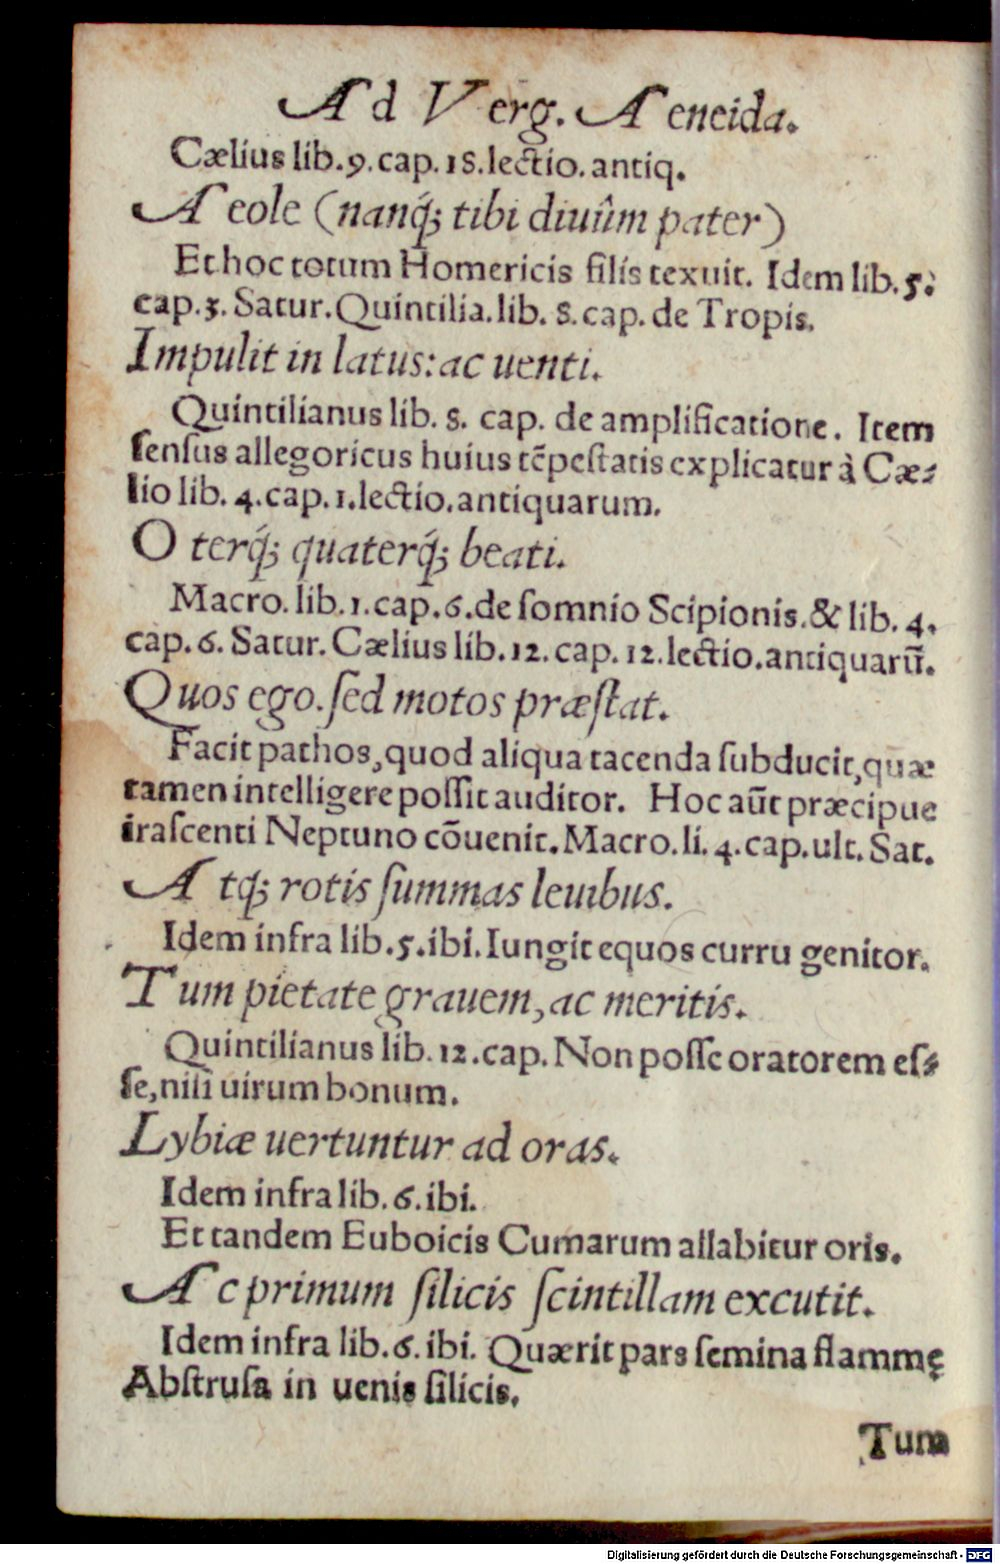 Ad Verg. Aeneida.
Cælius lib.9.cap.18.lectio.antiq.
Aeole (nanq́; tibi diuûm pater)
Et hoc totum Homericis filis texuit. Idem lib.5.
cap.3. Satur.Quintilia.lib. 8.cap.de Tropis.
Impulit in latus:ac uenti.
Quintilianus lib. 8. cap. de amplificatione. Item
ſenſus allegoricus huius tẽpeſtatis explicatur à Cæ⸗
lio lib. 4.cap.1.lectio.antiquarum.
O terq́; quaterq́; beati.
Macro.lib.1.cap.6.de ſomnio Scipionis.& lib. 4.
cap.6. Satur. Cælius lib.12.cap.12.lectio.antiquarũ.
Quos ego.ſed motos præſtat.
Facit pathos,quod aliqua tacenda ſubducit,quæ
tamen intelligere poſſit auditor. Hoc aũt præcipue
iraſcenti Neptuno cõuenit.Macro.li.4.cap.ult.Sat.
Atq́; rotis ſummas leuibus.
Idem infra lib.5.ibi.Iungit equos curru genitor.
Tum pietate grauem,ac meritis.
Quintilianus lib.12.cap.Non poſſe oratorem eſ⸗
ſe,niſi uirum bonum.
Lybiæ uertuntur ad oras.
Idem infra lib.6.ibi.
Et tandem Euboicis Cumarum allabitur oris.
Ac primum ſilicis ſcintillam excutit.
Idem infra lib.6.ibi. Quærit pars ſemina flammę
Abſtruſa in uenis ſilicis.
Tum
Digitalisierung gefördert durch die Deutsche Forschungsgemeinschaft - DFG